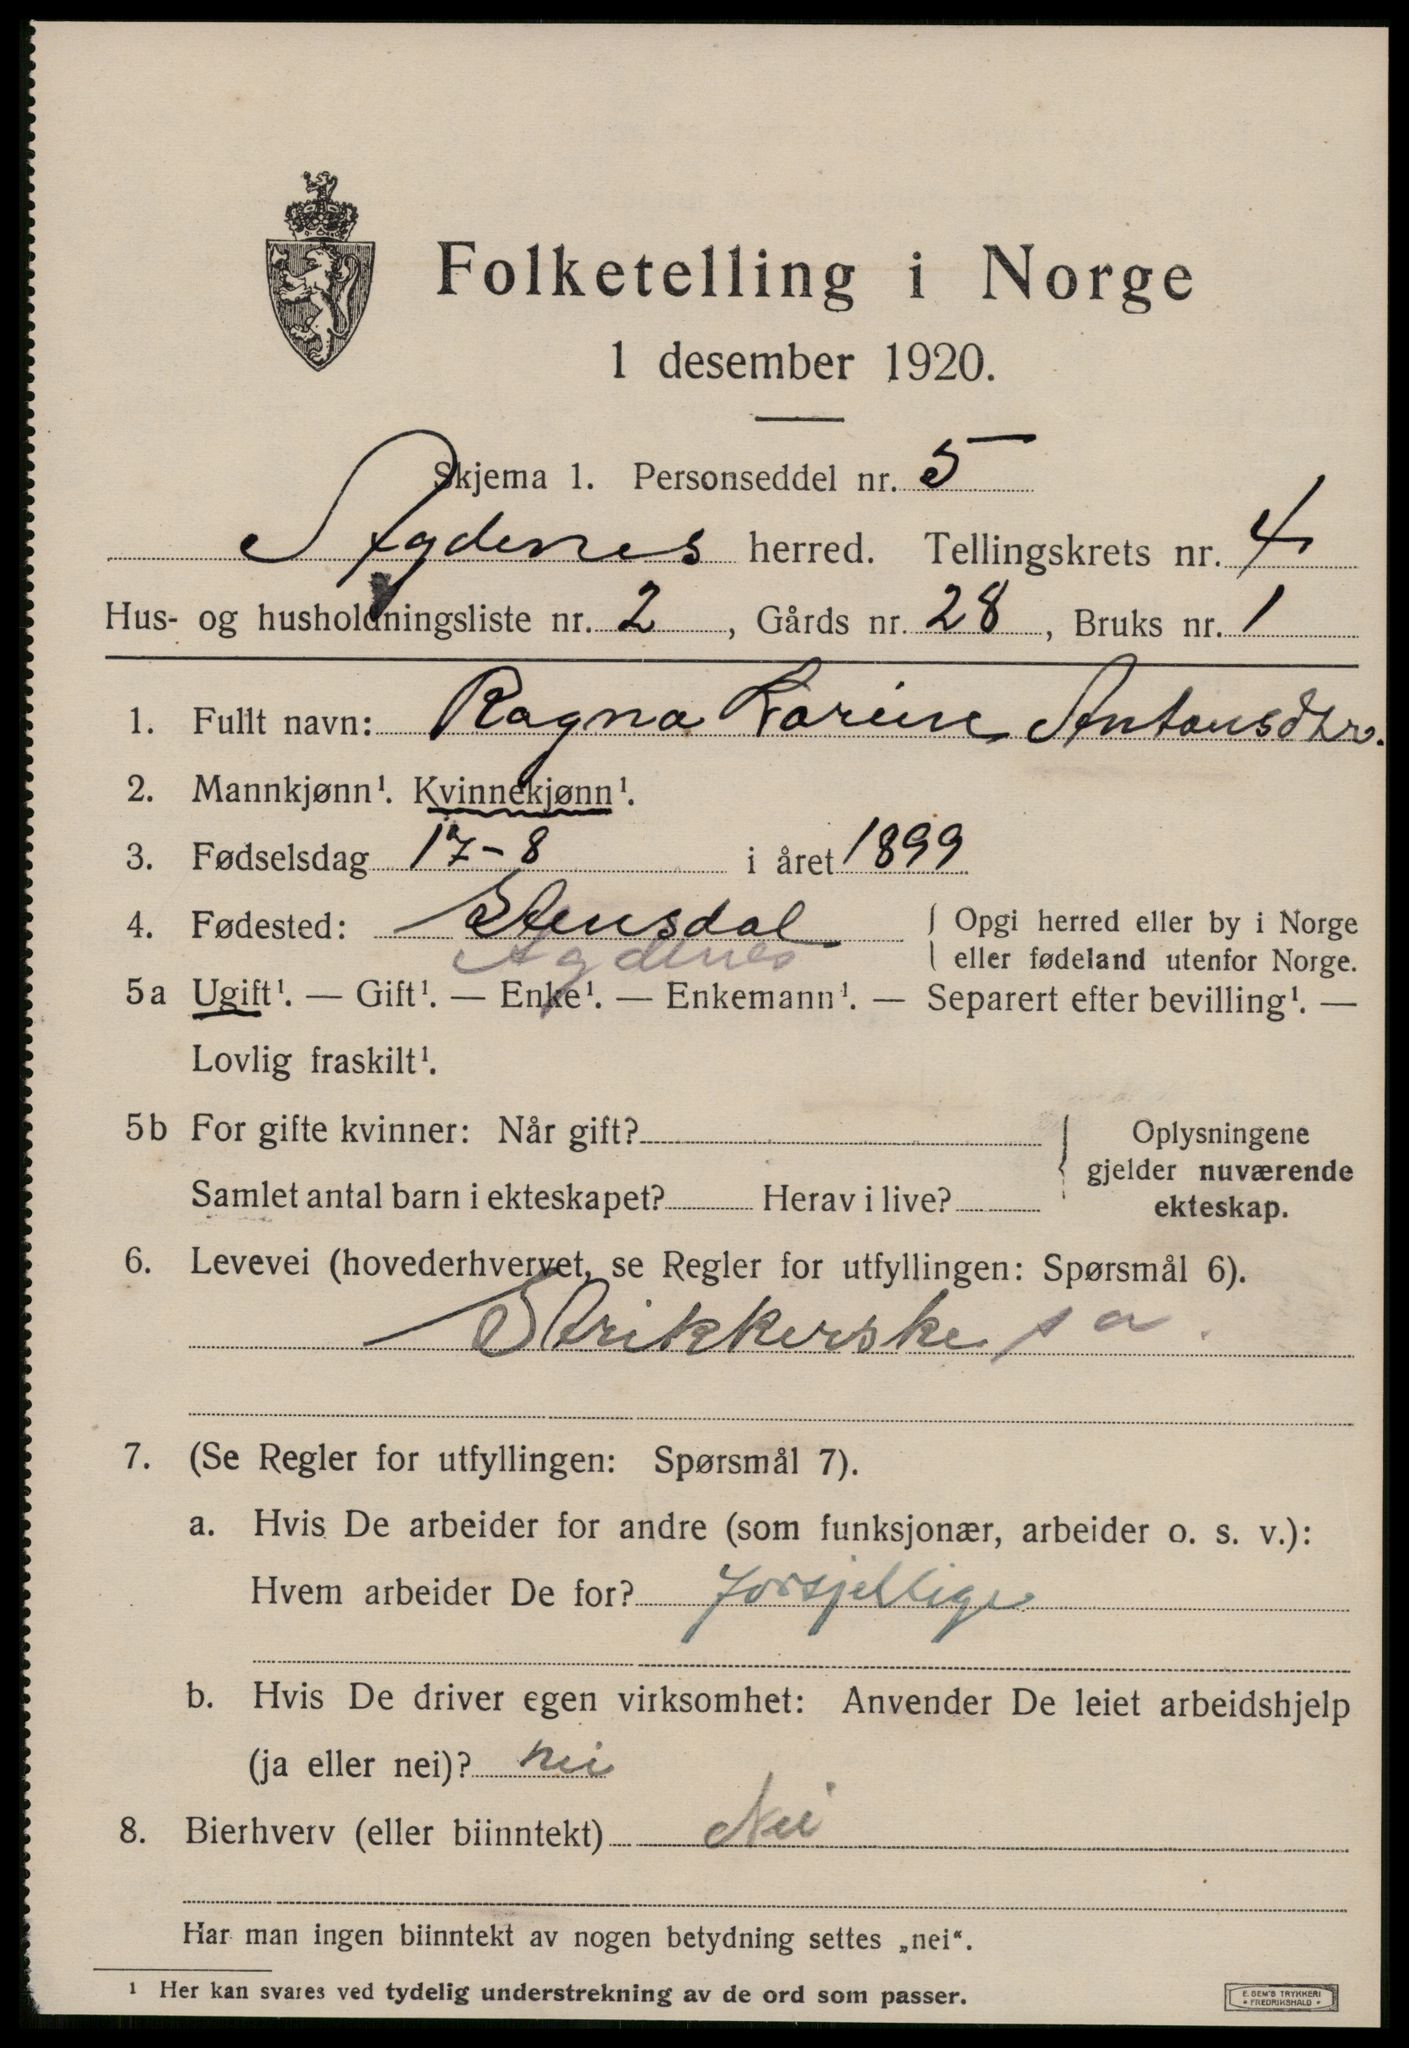 Folketelling i Norge
1 desember 1920.
Skjema 1. Personseddel nr. 5
Agdenes herred. Tellingskrets nr. 4
Hus- og husholdningsliste nr. 2, Gårds nr. 28, Bruks nr. 1
1. Fullt navn: Ragna Karine Antonsdtr.
2. Mannkjønn¹. Kvinnekjønn¹.
3. Fødselsdag 17-8 i året 1899
4. Fødested: Stensdal { Opgi herred eller by i Norge
Agdenes eller fødeland utenfor Norge.
5a Ugift¹. — Gift¹. — Enke¹. — Enkemann¹. — Separert efter bevilling¹. —
Lovlig fraskilt¹.
5b For gifte kvinner: Når gift? { Oplysningene
gjelder nuværende
Samlet antal barn i ekteskapet? Herav i live? ekteskap.
6. Levevei (hovederhvervet, se Regler for utfyllingen: Spørsmål 6).
Strikkerske s a.
7. (Se Regler for utfyllingen: Spørsmål 7).
a. Hvis De arbeider for andre (som funksjonær, arbeider o. s. v.):
Hvem arbeider De for? forsjellige
b. Hvis De driver egen virksomhet: Anvender De leiet arbeidshjelp
(ja eller nei)? nei
8. Bierhverv (eller biinntekt) Nei
Har man ingen biinntekt av nogen betydning settes „nei“.
¹ Her kan svares ved tydelig understrekning av de ord som passer.
E. SEM'S TRYKKERI
• FREDRIKSHALD •